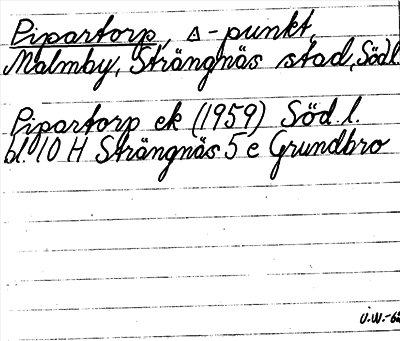 Pipartorp, △-punkt,
Malmby, Strängnäs stad, Södl.
Pipartorp ek (1959) Söd. l.
bl. 10 H Strängnäs 5 e Grundbro
Ü.W.-62